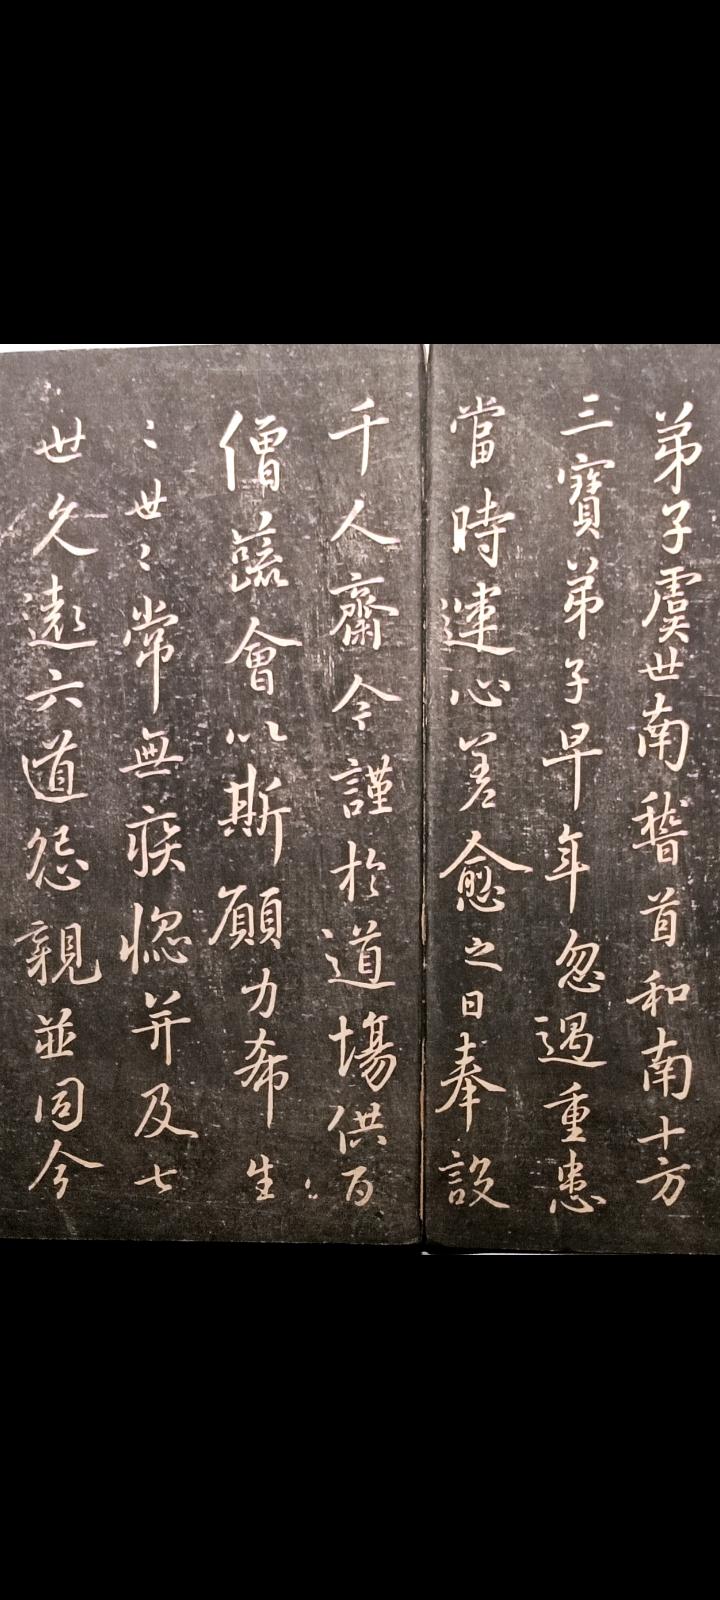 弟子虞世南稽首和南十方
三寶弟子早年忽遇重患
當時運心差愈之日奉設
千人齋今謹於道場供百
僧蔬會以斯願力希生
〻世〻常無疾惱并及七
世久遠六道怨親並同今